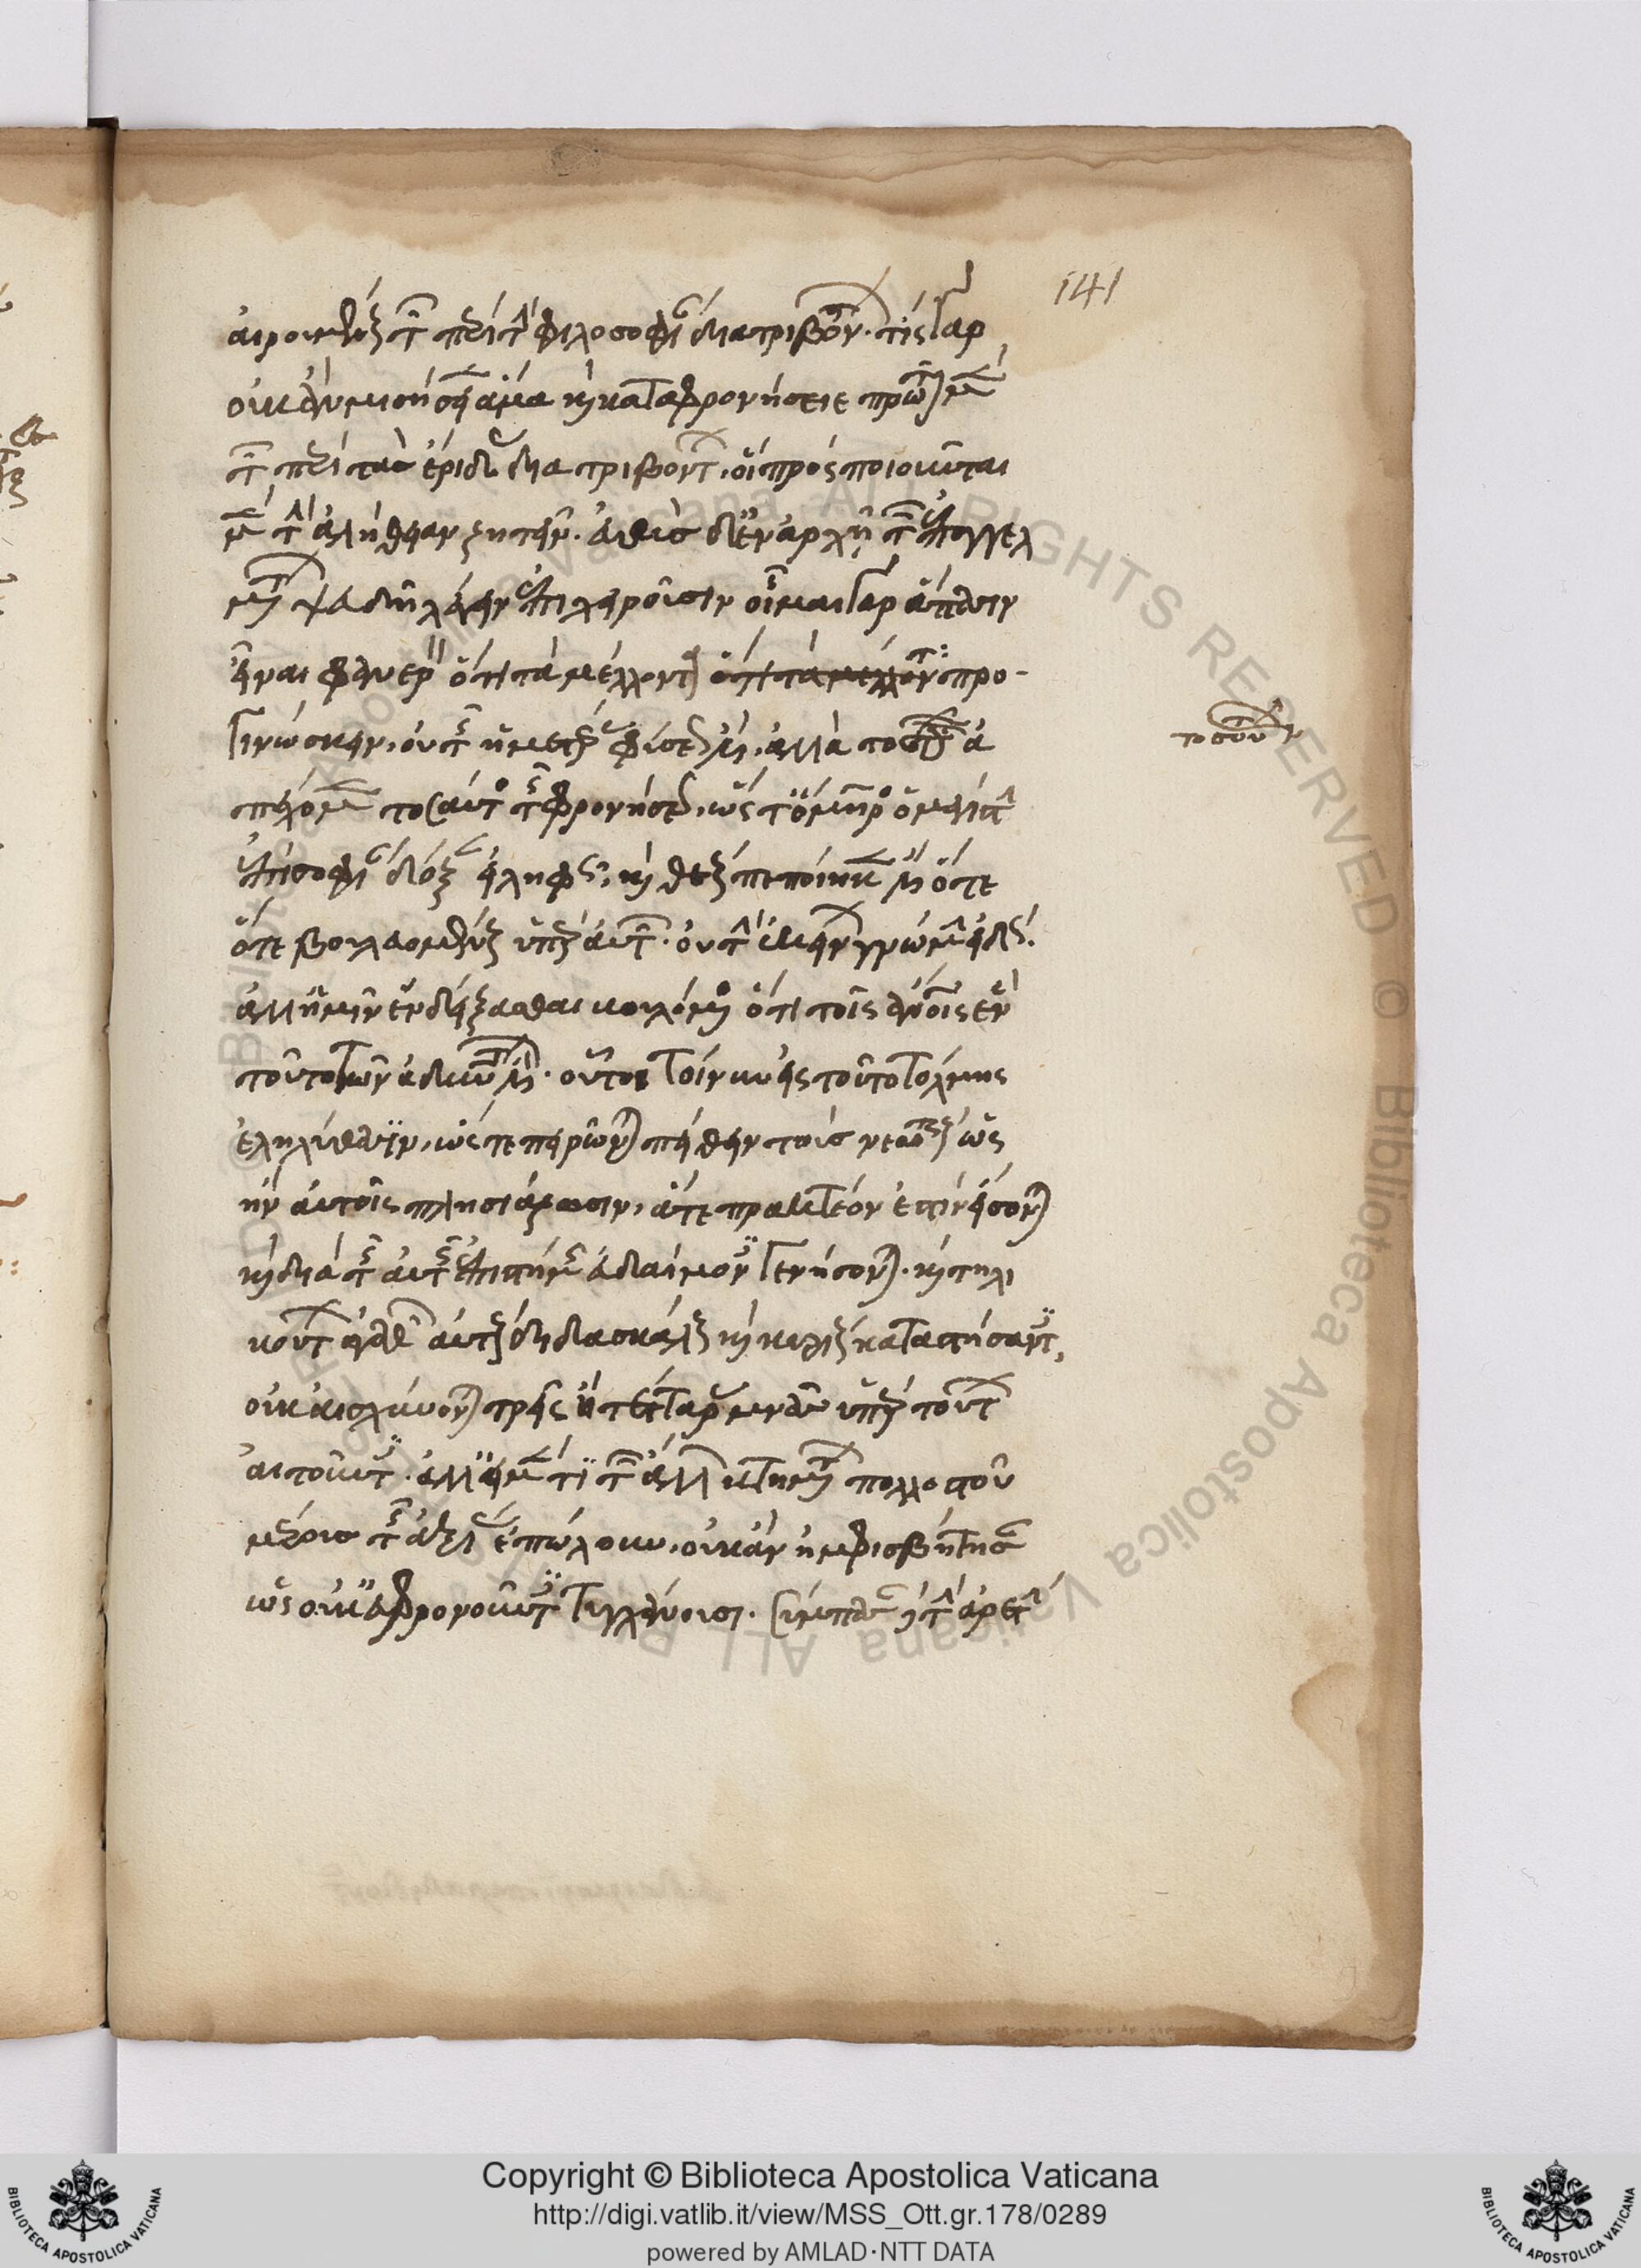 αἱρουμένους τῶν περὶ τὴν φιλοσοφίαν διατριβόντων. τίς γὰρ
οὐκ ἂν μισήσειεν ἅμα καὶ καταφρονήσειε πρῶτον μὲν
τῶν περὶ τὰς ἔριδας διατριβόντων, οἳ προσποιοῦνται
μὲν τὴν ἀλήθειαν ζητεῖν. εὐθὺς δ' ἐν ἀρχῇ τῶν ἐπαγγελ
μάτων ψευδῆ λέγειν ἐπιχειροῦσιν οἶμαι γὰρ ἅπασιν
εἶναι φανερὸν ὅτι τὰ μέλλοντα ὅτι τὰ μέλλοντα προ-
γινώσκειν, οὐ τῆς ἡμετέρας φύσεώς ἐστιν, ἀλλὰ τοσοῦτον ἀ
τοσοῦτον
πέχομεν ταύτης τῆς φρονήσεως, ὥσθ' ὅμηρος ὁ μεγίστην
ἐπὶ σοφίᾳ δόξαν εἰληφώς, καὶ θεοὺς πεποίηκεν ἔστιν ὅτε
ὅτε βουλευομένους ὑπὲρ αὐτῶν. οὐ τὴν ἐκείνων γνώμην εἰδώς.
ἀλλ' ἡμῖν ἐνδείξασθαι βουλόμενος ὅτι τοῖς ἀνθρώποις ἓν
τοῦτο τῶν ἀδυνάτων ἐστίν. οὗτοι τοίνυν εἰς τοῦτο τόλμης
ἐληλύθασιν, ὥστε πειρῶνται πείθειν τοὺς νεωτέρους ὡς
ἢν αὐτοῖς πλησιάζωσιν, ἅ τε πρακτέον ἐστὶν εἴσονται
καὶ διὰ ταύτης τῆς ἐπιστήμης εὐδαίμονες γενήσονται. καὶ τηλι
κούτων ἀγαθῶν αὑτοὺς διδασκάλους καὶ κυρίους καταστήσαντες,
οὐκ αἰσχύνονται τρεῖς ἢ τέτταρας μνᾶς ὑπὲρ τούτων
αἰτοῦντες. ἀλλ' εἰ μέν τι τῶν ἄλλων κτημάτων πολλοστοῦ
μέρους τῆς ἀξίας ἐπώλουν, οὐκ ἂν ἠμφισβήτησαν
ὡς οὐκ εὖ φρονοῦντες τυγχάνουσι. σύμπασαν δὲ τὴν ἀρετὴν
141
Copyright © Biblioteca Apostolica Vaticana
http://digi.vatlib.it/view/MSS_Ott.gr.178/0289
powered by AMLAD·NTT DATA